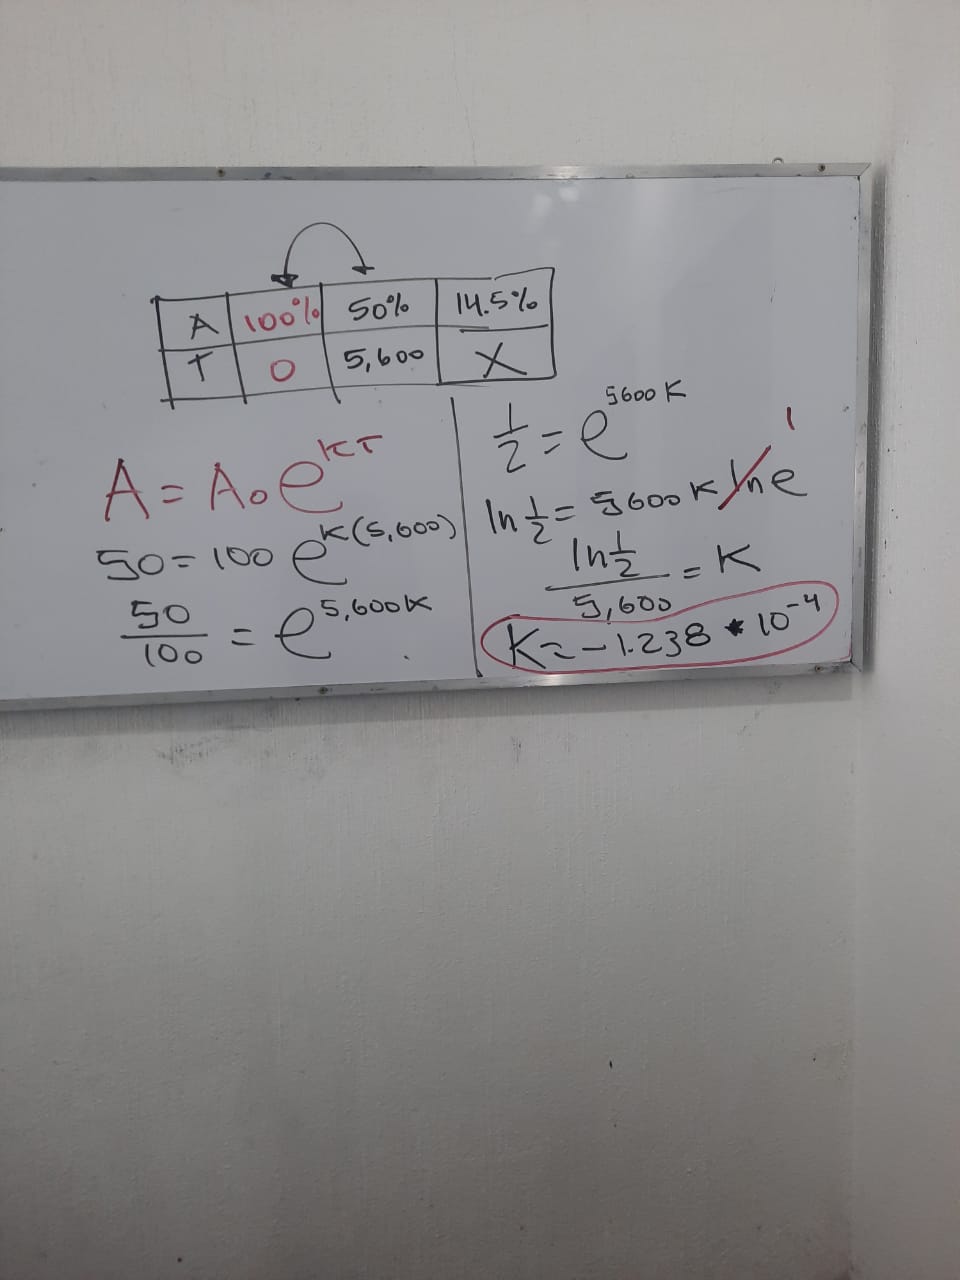 A 100% 50% 14.5%
T 0 5,600 X
A = A₀e^KT
50 = 100 e^K(5,600)
50/100 = e^5,600K
1/2 = e^5600K
ln 1/2 = 5600 K ln e 1
ln 1/2 / 5,600 = K
K = -1.238 * 10^-4